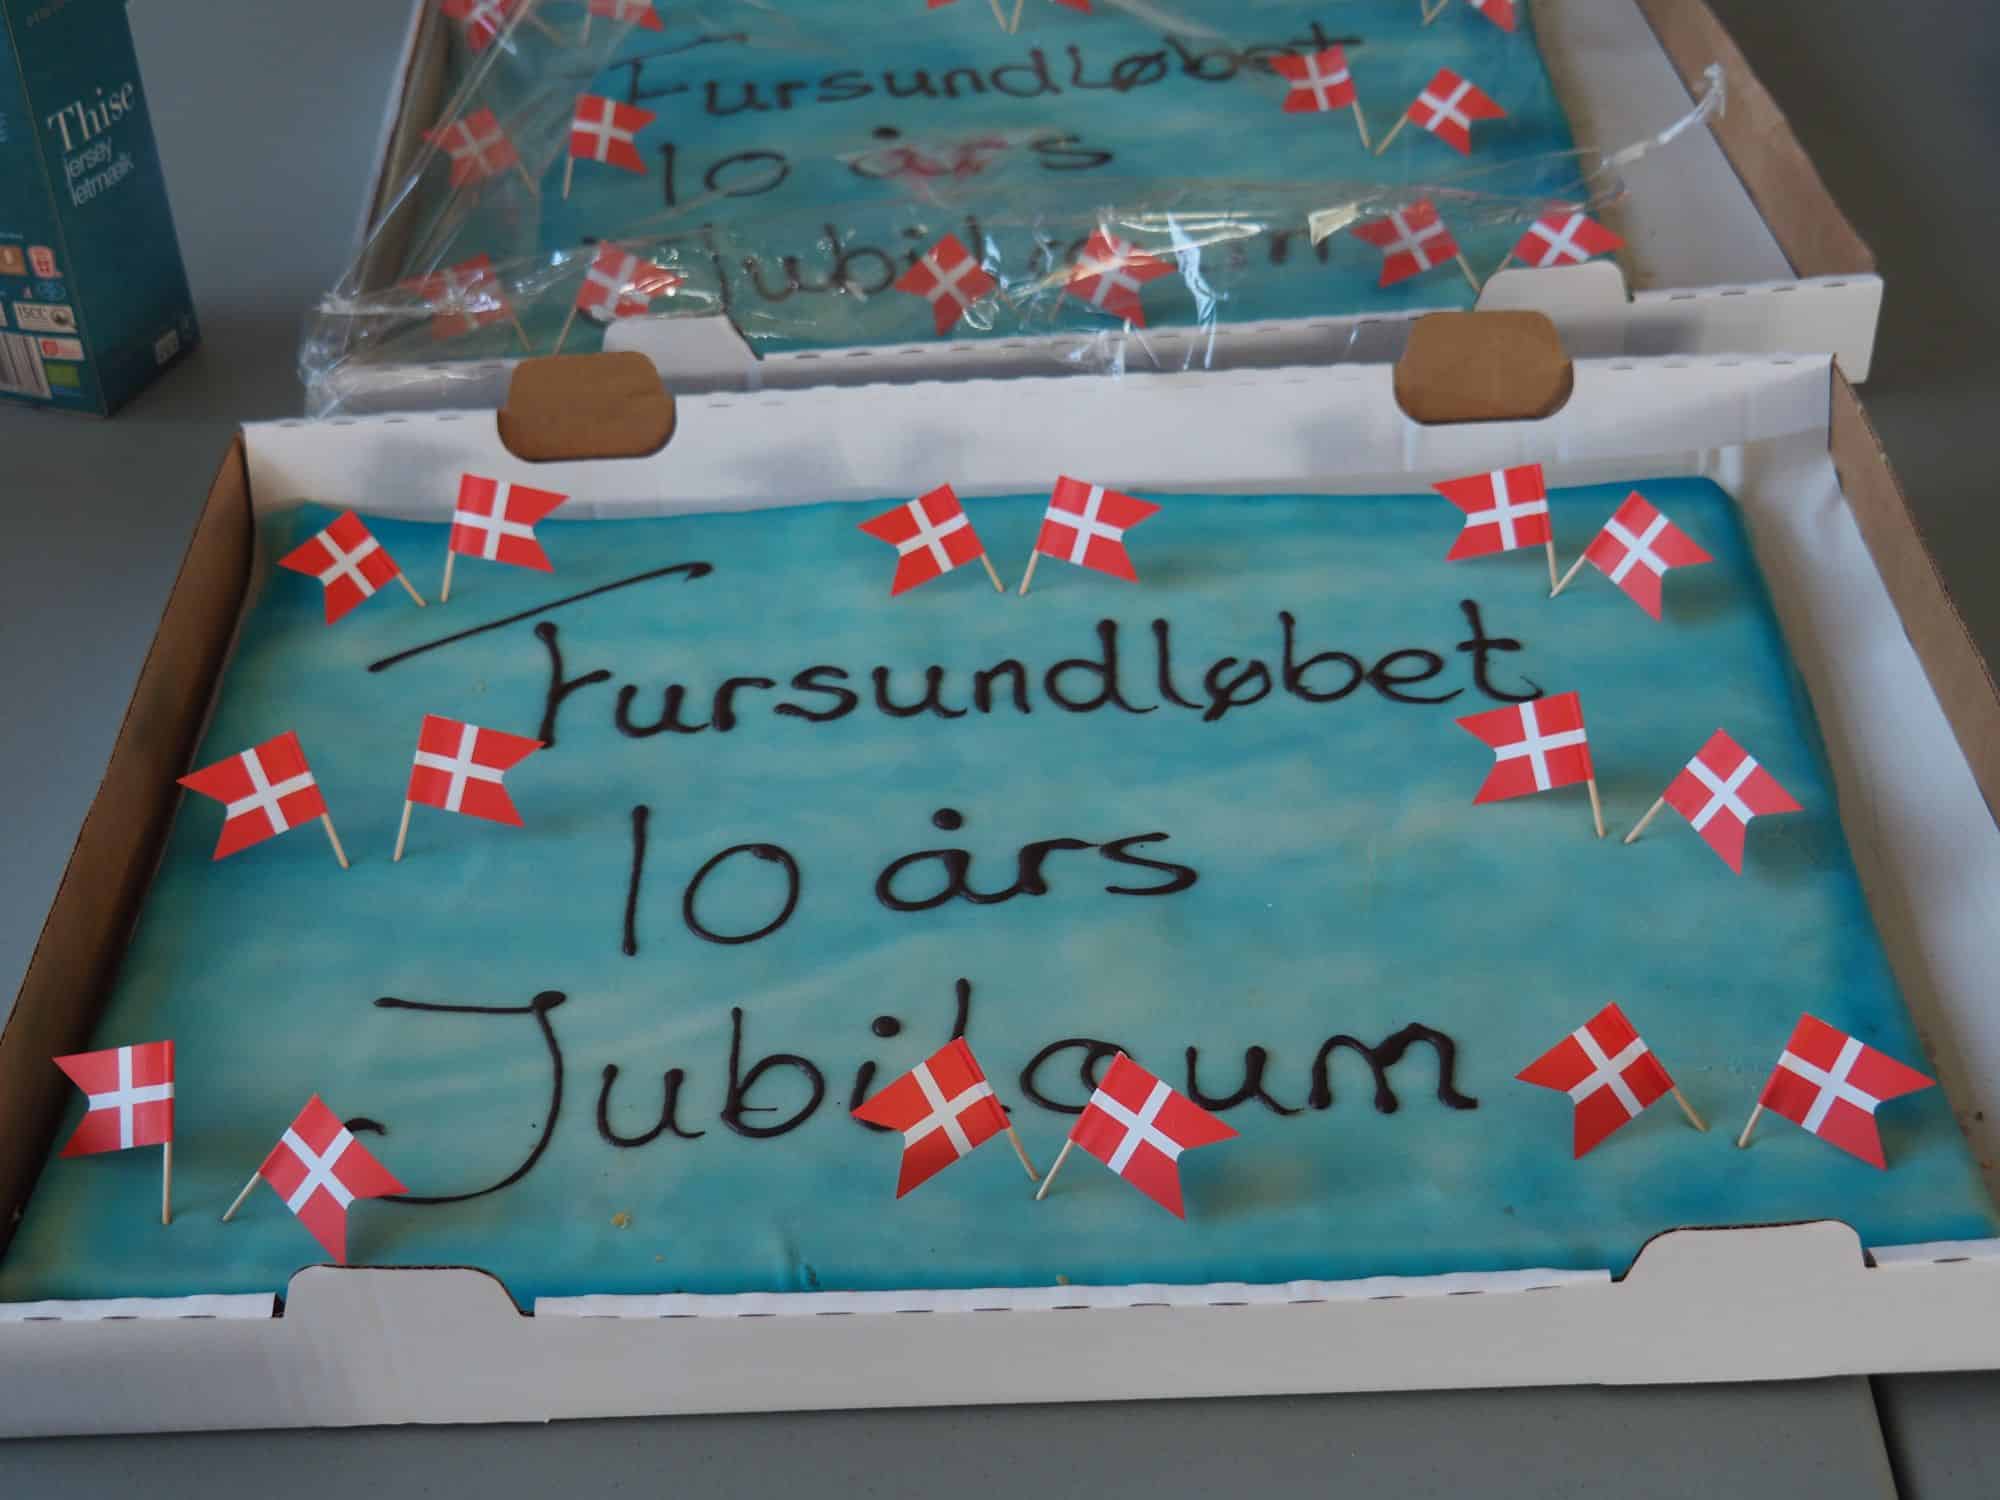 Thise
jersey
letmælk
ISCC
Fursundløbet
10 års
Fursundløbet
10 års
Jubilæum